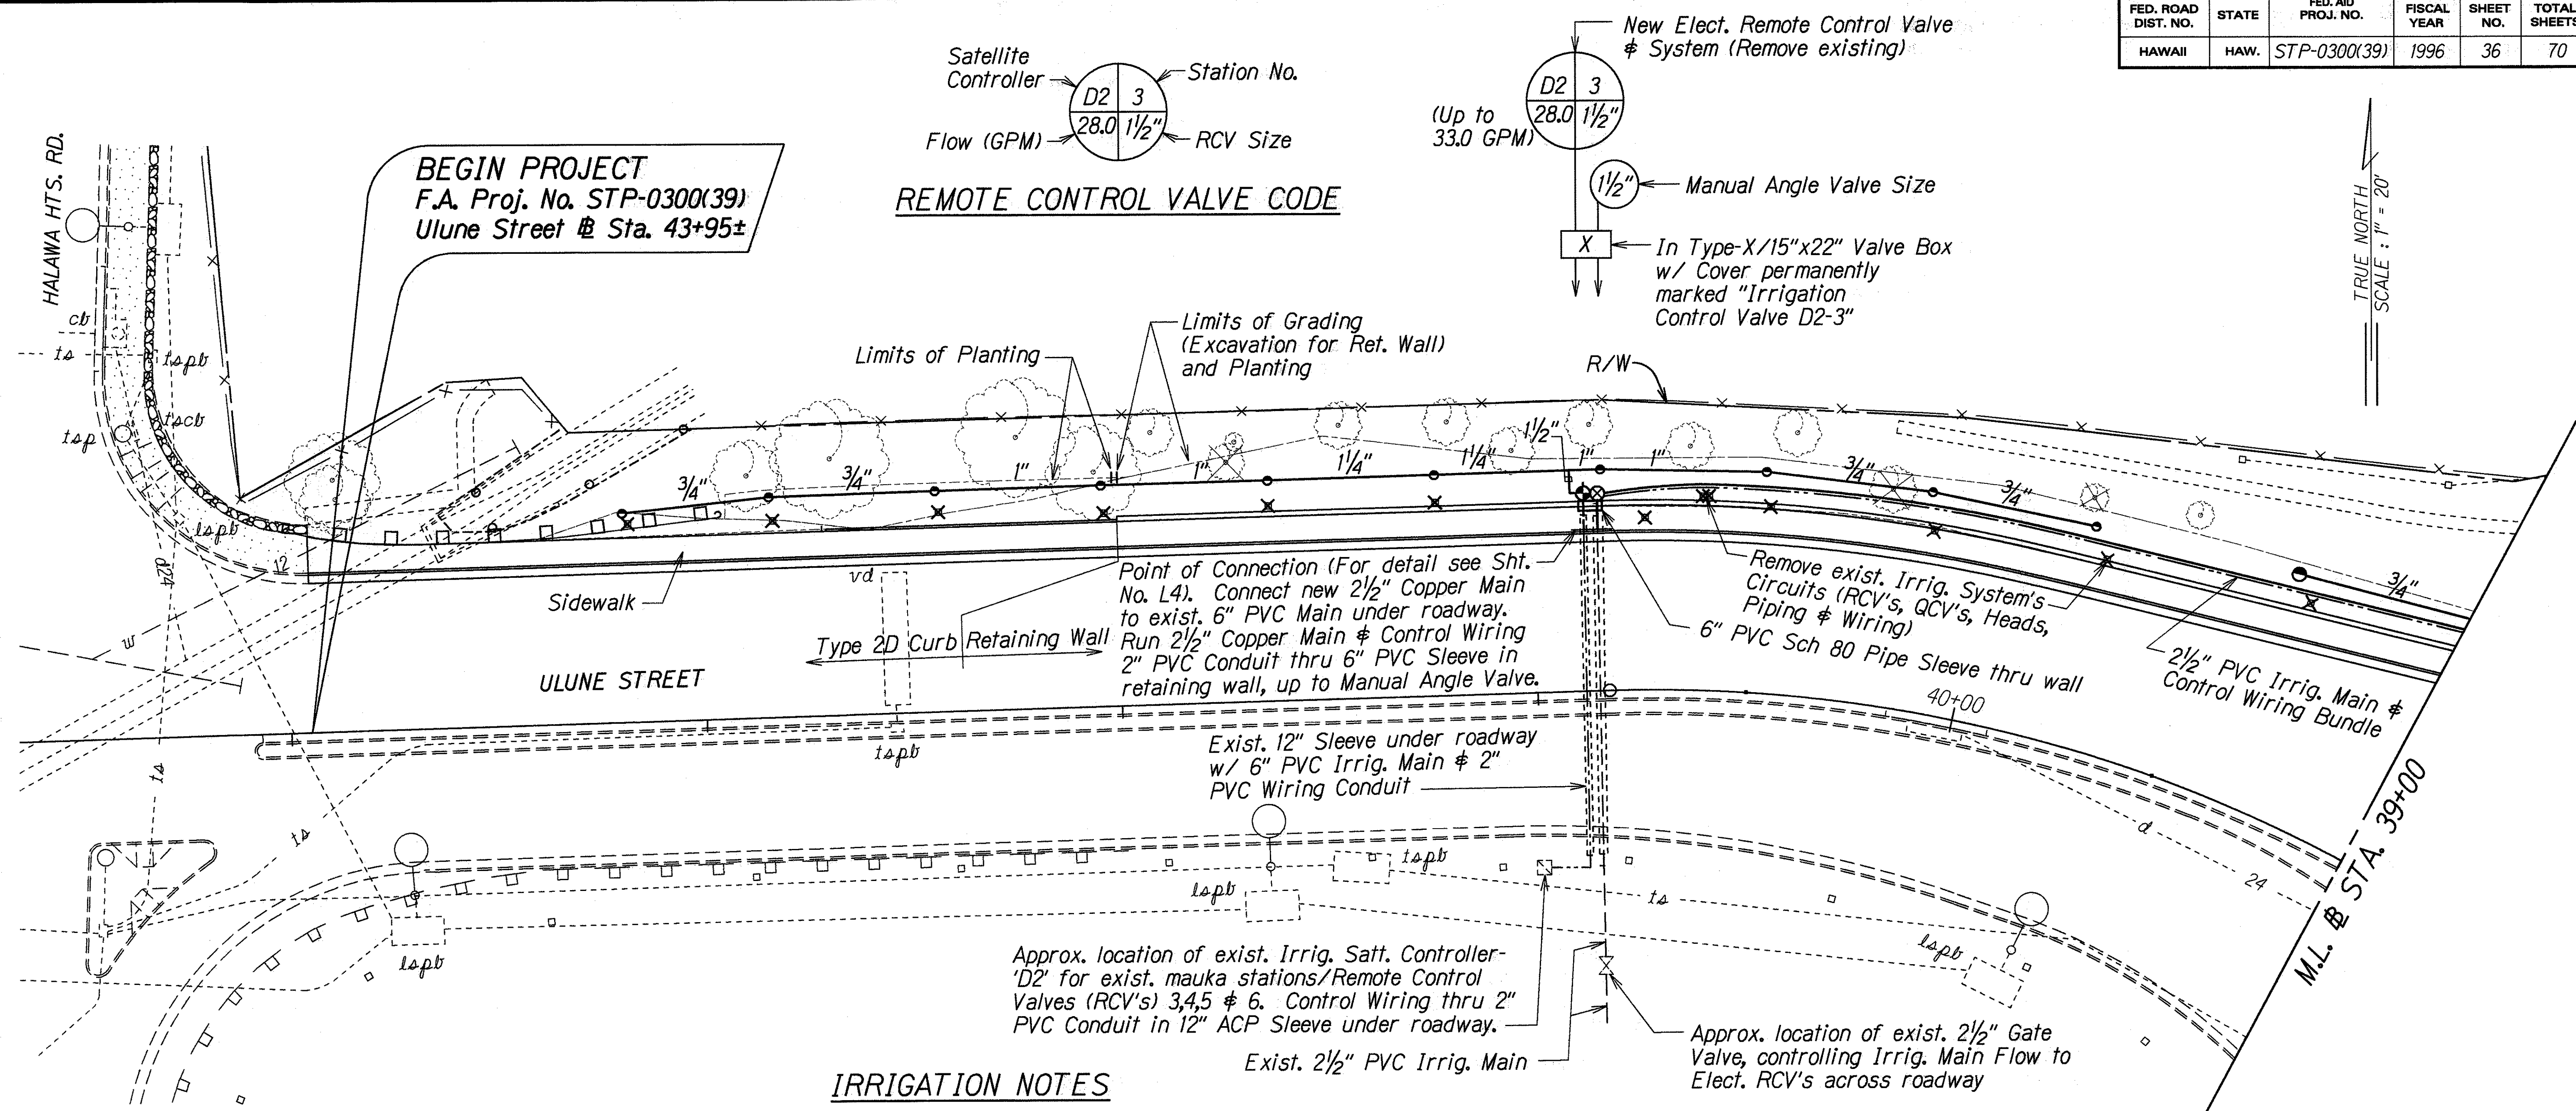 FED. ROAD DIST. NO.
STATE
FED. AID PROJ. NO.
FISCAL YEAR
SHEET NO.
TOTAL SHEETS
HAWAII
HAW.
STP-0300(39)
1996
36
70
Satellite
Controller
Station No.
D2 3
28.0 1½"
Flow (GPM)
RCV Size
REMOTE CONTROL VALVE CODE
New Elect. Remote Control Valve
& System (Remove existing)
D2 3
28.0 1½"
(Up to
33.0 GPM)
1½"
Manual Angle Valve Size
X
In Type-X/15"x22" Valve Box
w/ Cover permanently
marked "Irrigation
Control Valve D2-3"
TRUE NORTH
SCALE : 1" = 20'
HALAWA HTS. RD.
BEGIN PROJECT
F.A. Proj. No. STP-0300(39)
Ulune Street ℄ Sta. 43+95±
cb
ts
tspb
tscb
tsp
lspb
12
d24
w
ts
Limits of Planting
Limits of Grading
(Excavation for Ret. Wall)
and Planting
R/W
3/4"
3/4"
1"
1"
1¼"
1¼"
1½"
1"
1"
3/4"
3/4"
3/4"
2
Sidewalk
vd
Type 2D Curb Retaining Wall
ULUNE STREET
Point of Connection (For detail see Sht.
No. L4). Connect new 2½" Copper Main
to exist. 6" PVC Main under roadway.
Run 2½" Copper Main & Control Wiring
2" PVC Conduit thru 6" PVC Sleeve in
retaining wall, up to Manual Angle Valve.
Remove exist. Irrig. System's
Circuits (RCV's, QCV's, Heads,
Piping & Wiring)
6" PVC Sch 80 Pipe Sleeve thru wall
2½" PVC Irrig. Main &
Control Wiring Bundle
40+00
tspb
Exist. 12" Sleeve under roadway
w/ 6" PVC Irrig. Main & 2"
PVC Wiring Conduit
ts
tspb
lspb
ts
lspb
lspb
d
24
M.L. ℄ STA. 39+00
Approx. location of exist. Irrig. Satt. Controller-
'D2' for exist. mauka stations/Remote Control
Valves (RCV's) 3,4,5 & 6. Control Wiring thru 2"
PVC Conduit in 12" ACP Sleeve under roadway.
Exist. 2½" PVC Irrig. Main
Approx. location of exist. 2½" Gate
Valve, controlling Irrig. Main Flow to
Elect. RCV's across roadway
IRRIGATION NOTES